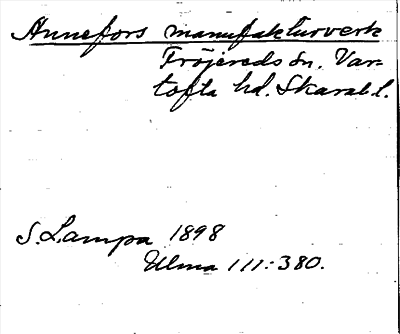 Annefors manufakturverk
Fröjereds sn. Var-
tofta hd. Skarab.l.
S. Lampa 1898
Ulma 111:380.